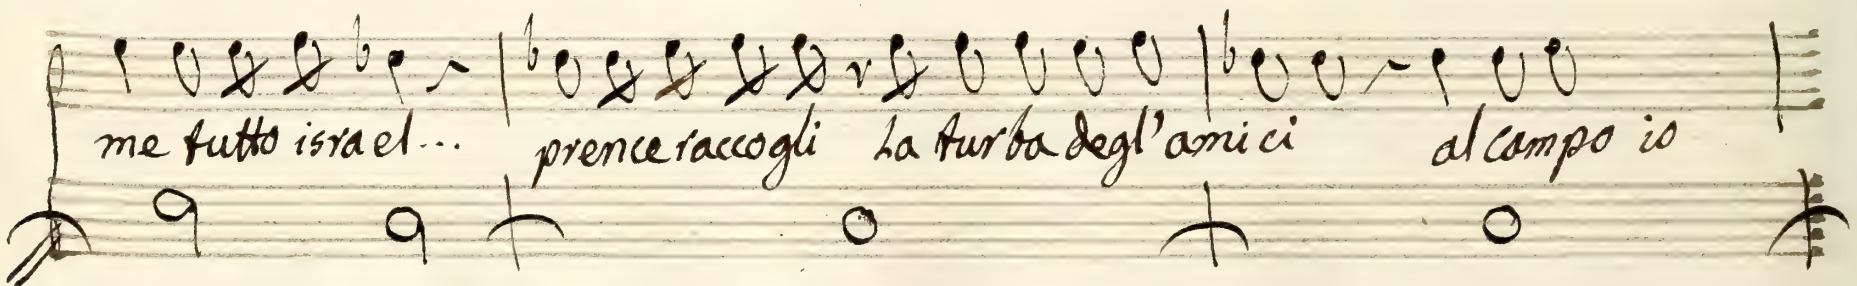 me tutto israel... prence raccogli La turba degl'amici al campo io